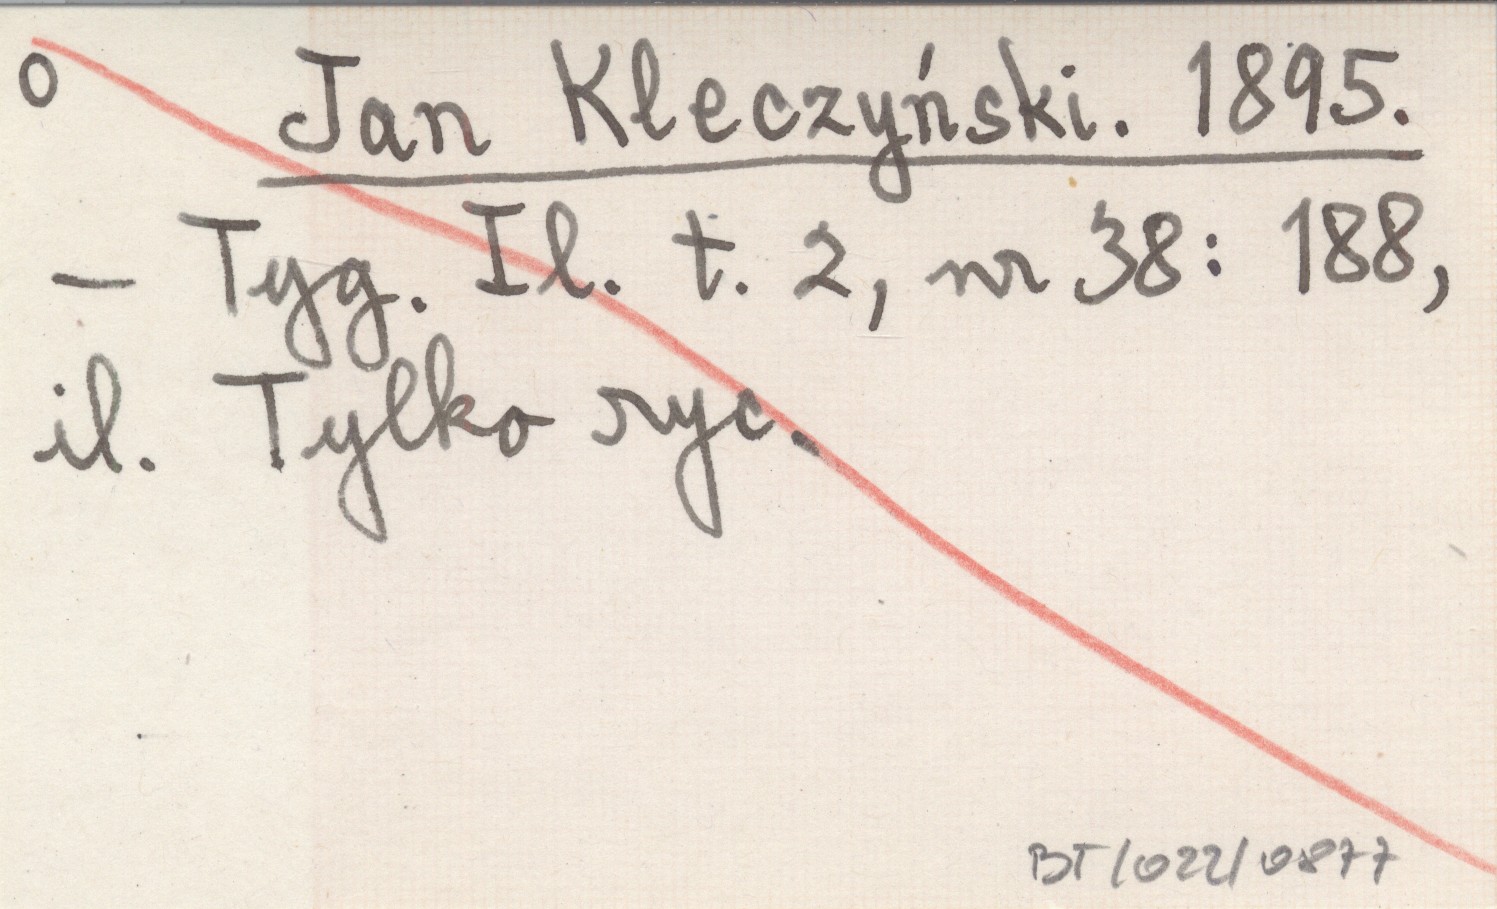 o Jan Kleczyński. 1895.
— Tyg. Il. t. 2, nr 38: 188,
il. Tylko ryc.
BT/022/0877